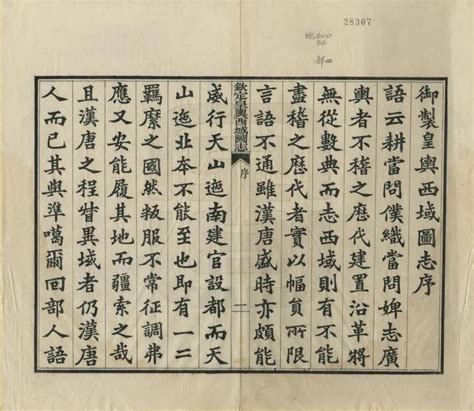 28307
御製皇輿西域圖志序
語云耕當問僕織當問婢志廣
輿者不稽之歷代建置沿革將
無從數典而志西域則有不能
盡稽之歷代者實以幅員所限
言語不通雖漢唐盛時亦頗能
欽定皇輿西域圖志
序
一
威行天山迤南建官設都而天
山迤北本不能至也即有一二
羈縻之國然叛服不常征調弗
應又安能履其地而疆索之哉
且漢唐之程督異域者仍漢唐
人而已其與準噶爾回部人語